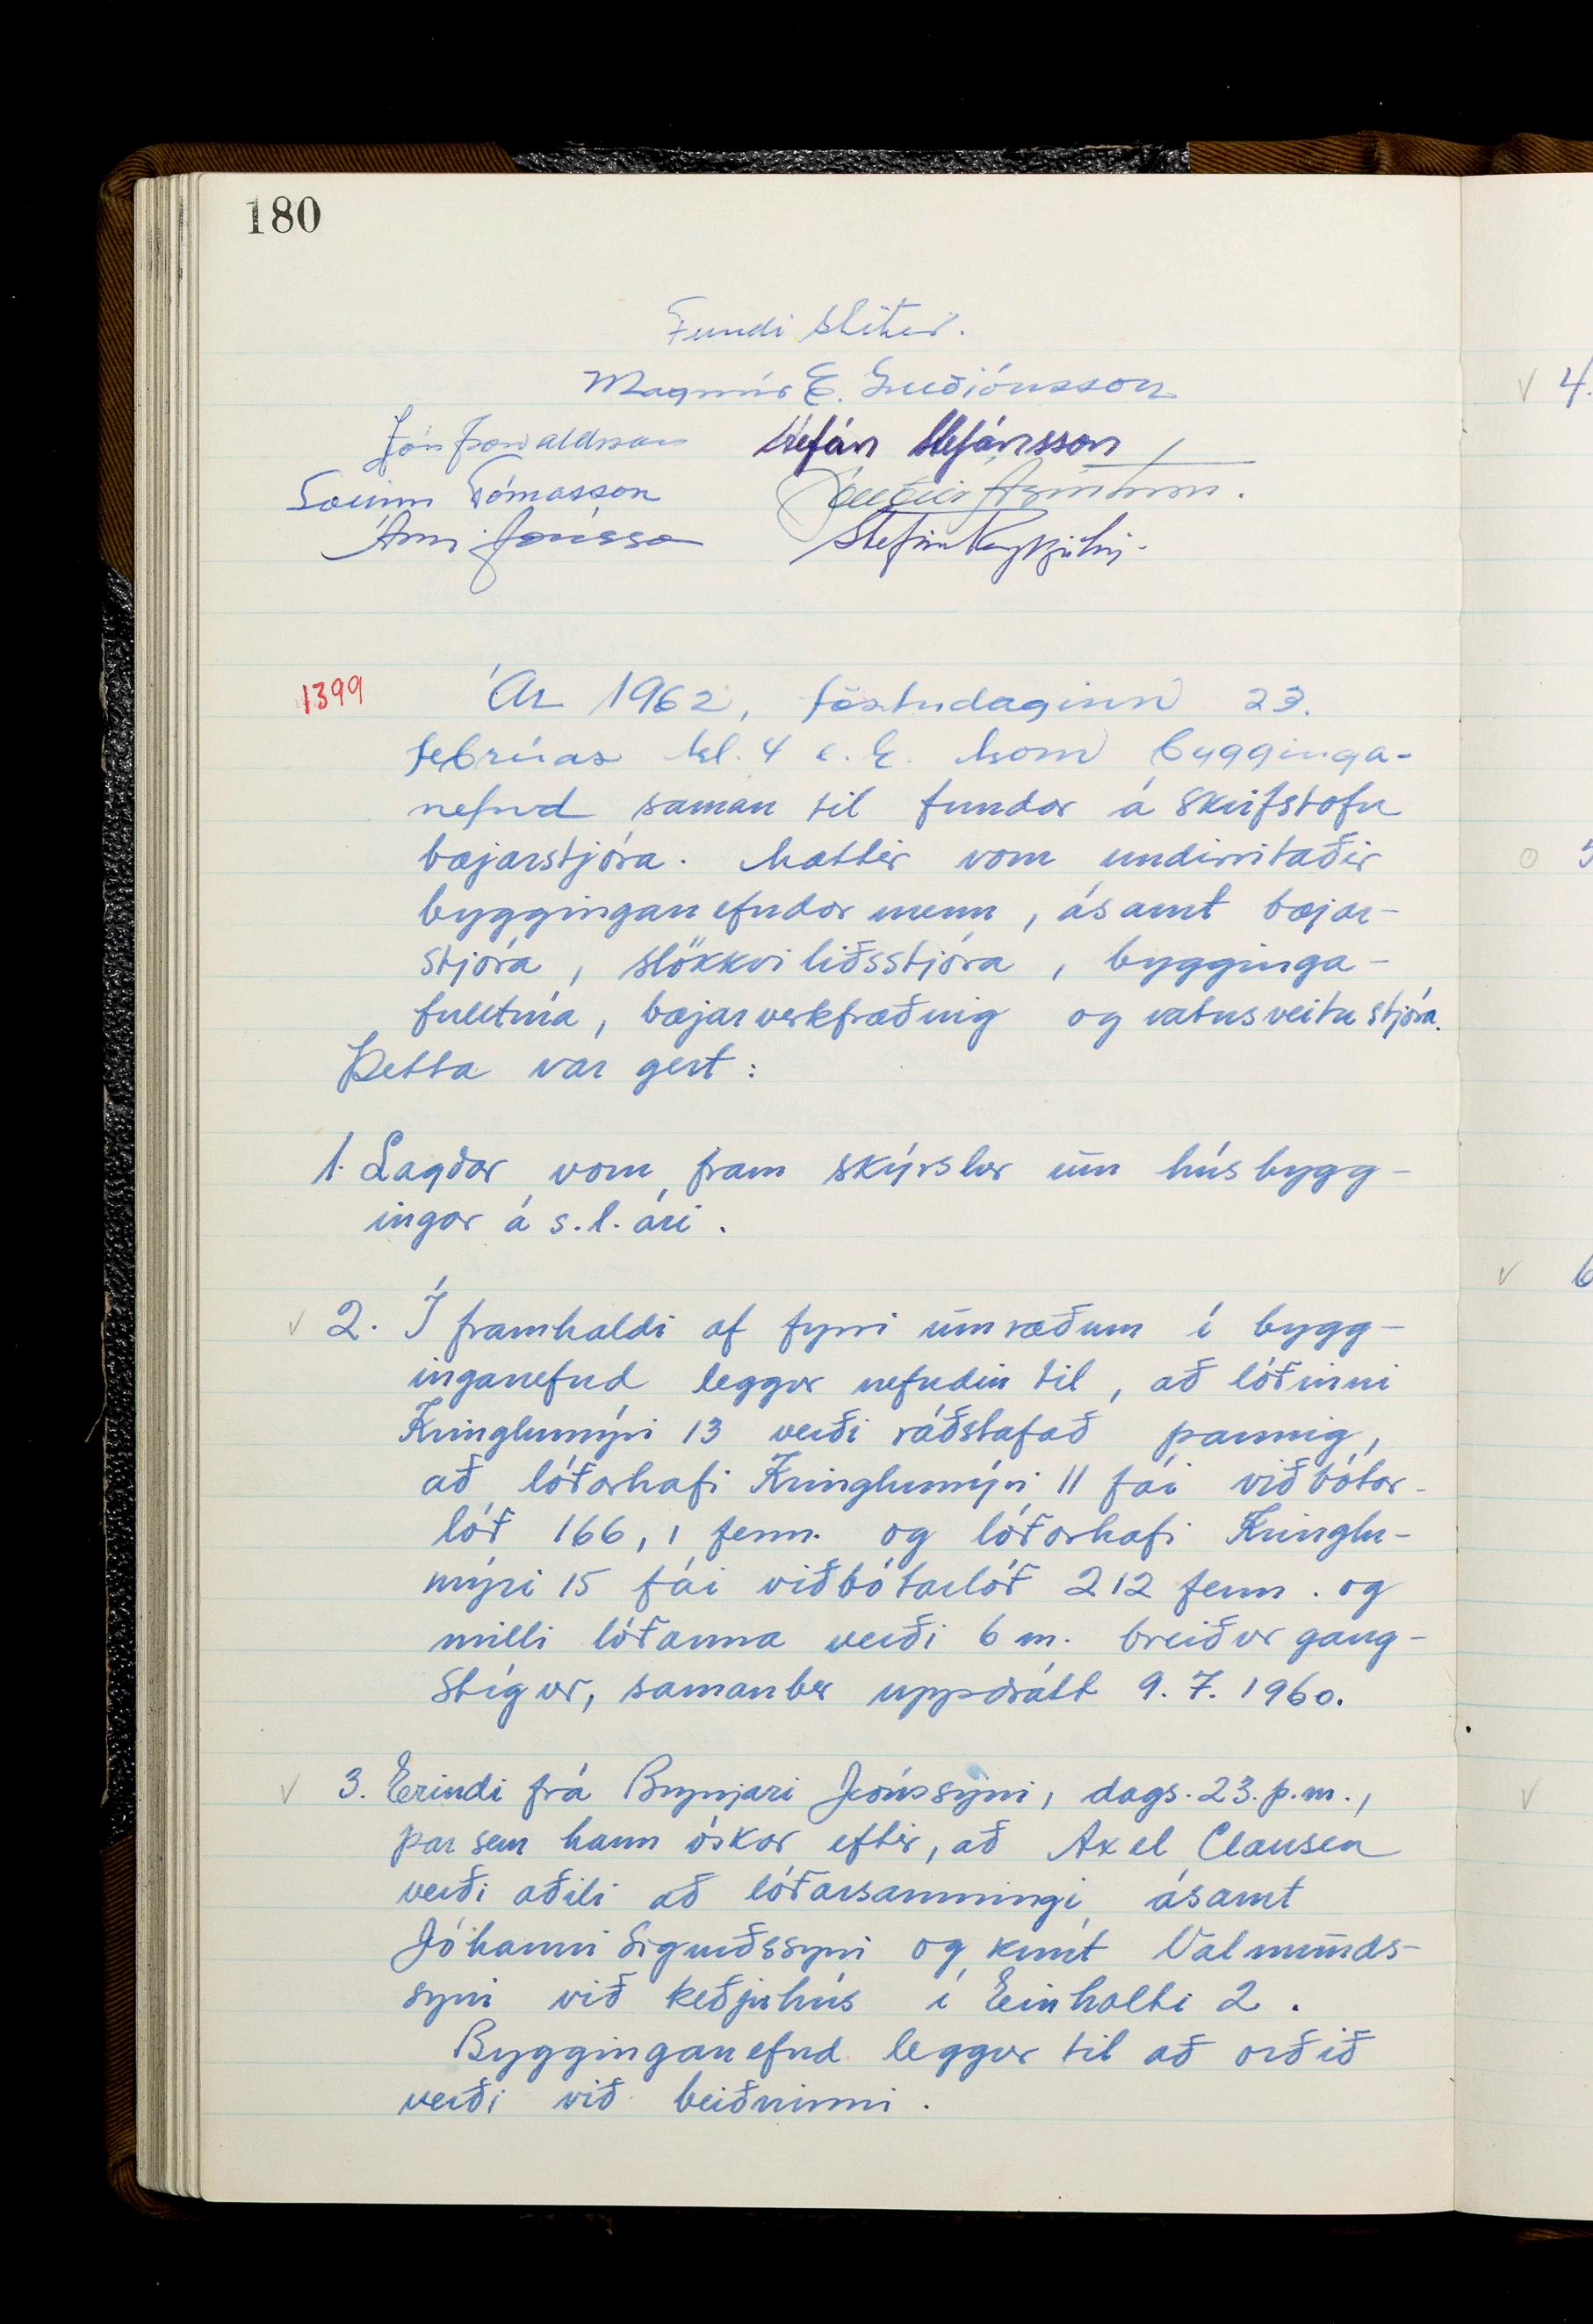 180
Fundi slitið.
Magnús E. Guðjónsson
Jón Þorvaldsson Stefán Stefánsson
Sveinn Tómasson
Árni Jónsson Stefán Reykjalín.
1399 Ár 1962, föstudaginn 23.
febrúar kl. 4 e.h. kom bygginga-
nefnd saman til fundar á skrifstofu
bæjarstjóra. Mættir voru undirritaðir
bygginganefndar menn, ásamt bæjar-
stjóra, slökkviliðsstjóra, bygginga-
fulltrúa, bæjarverkfræðing og vatnsveitustjóra.
Þetta var gert:
1. Lagðar voru fram skýrslur um húsbygg-
ingar á s.l. ári.
2. Í framhaldi af fyrri umræðum í bygg-
inganefnd leggur nefndin til, að lóðinni
Kringlumýri 13 verði ráðstafað þannig,
að lóðarhafi Kringlumýri 11 fái viðbótar-
lóð 166,1 ferm. og lóðarhafi Kringlu-
mýri 15 fái viðbótarlóð 212 ferm. og
milli lóðanna verði 6 m. breiður gang-
stígur, samanber uppdrátt 9.7.1960.
3. Erindi frá Brynjari Jónssyni, dags. 23. þ.m.,
þar sem hann óskar eftir, að Axel Clausen
verði aðili að lóðarsamningi ásamt
Jóhanni Sigurðssyni og Knút Valmunds-
syni við keðjuhús í Einholti 2.
Bygginganefnd leggur til að orðið
verði við beiðninni.
4.
5
6